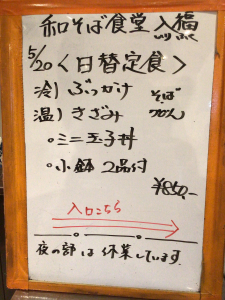 和そば食堂 入福
5/20 〈日替定食〉
冷) ぶっかけ そば
温) きざみ うどん
・ミニ玉子丼
・小鉢 2品付
¥850.-
入口こちら
夜の部は休業しています